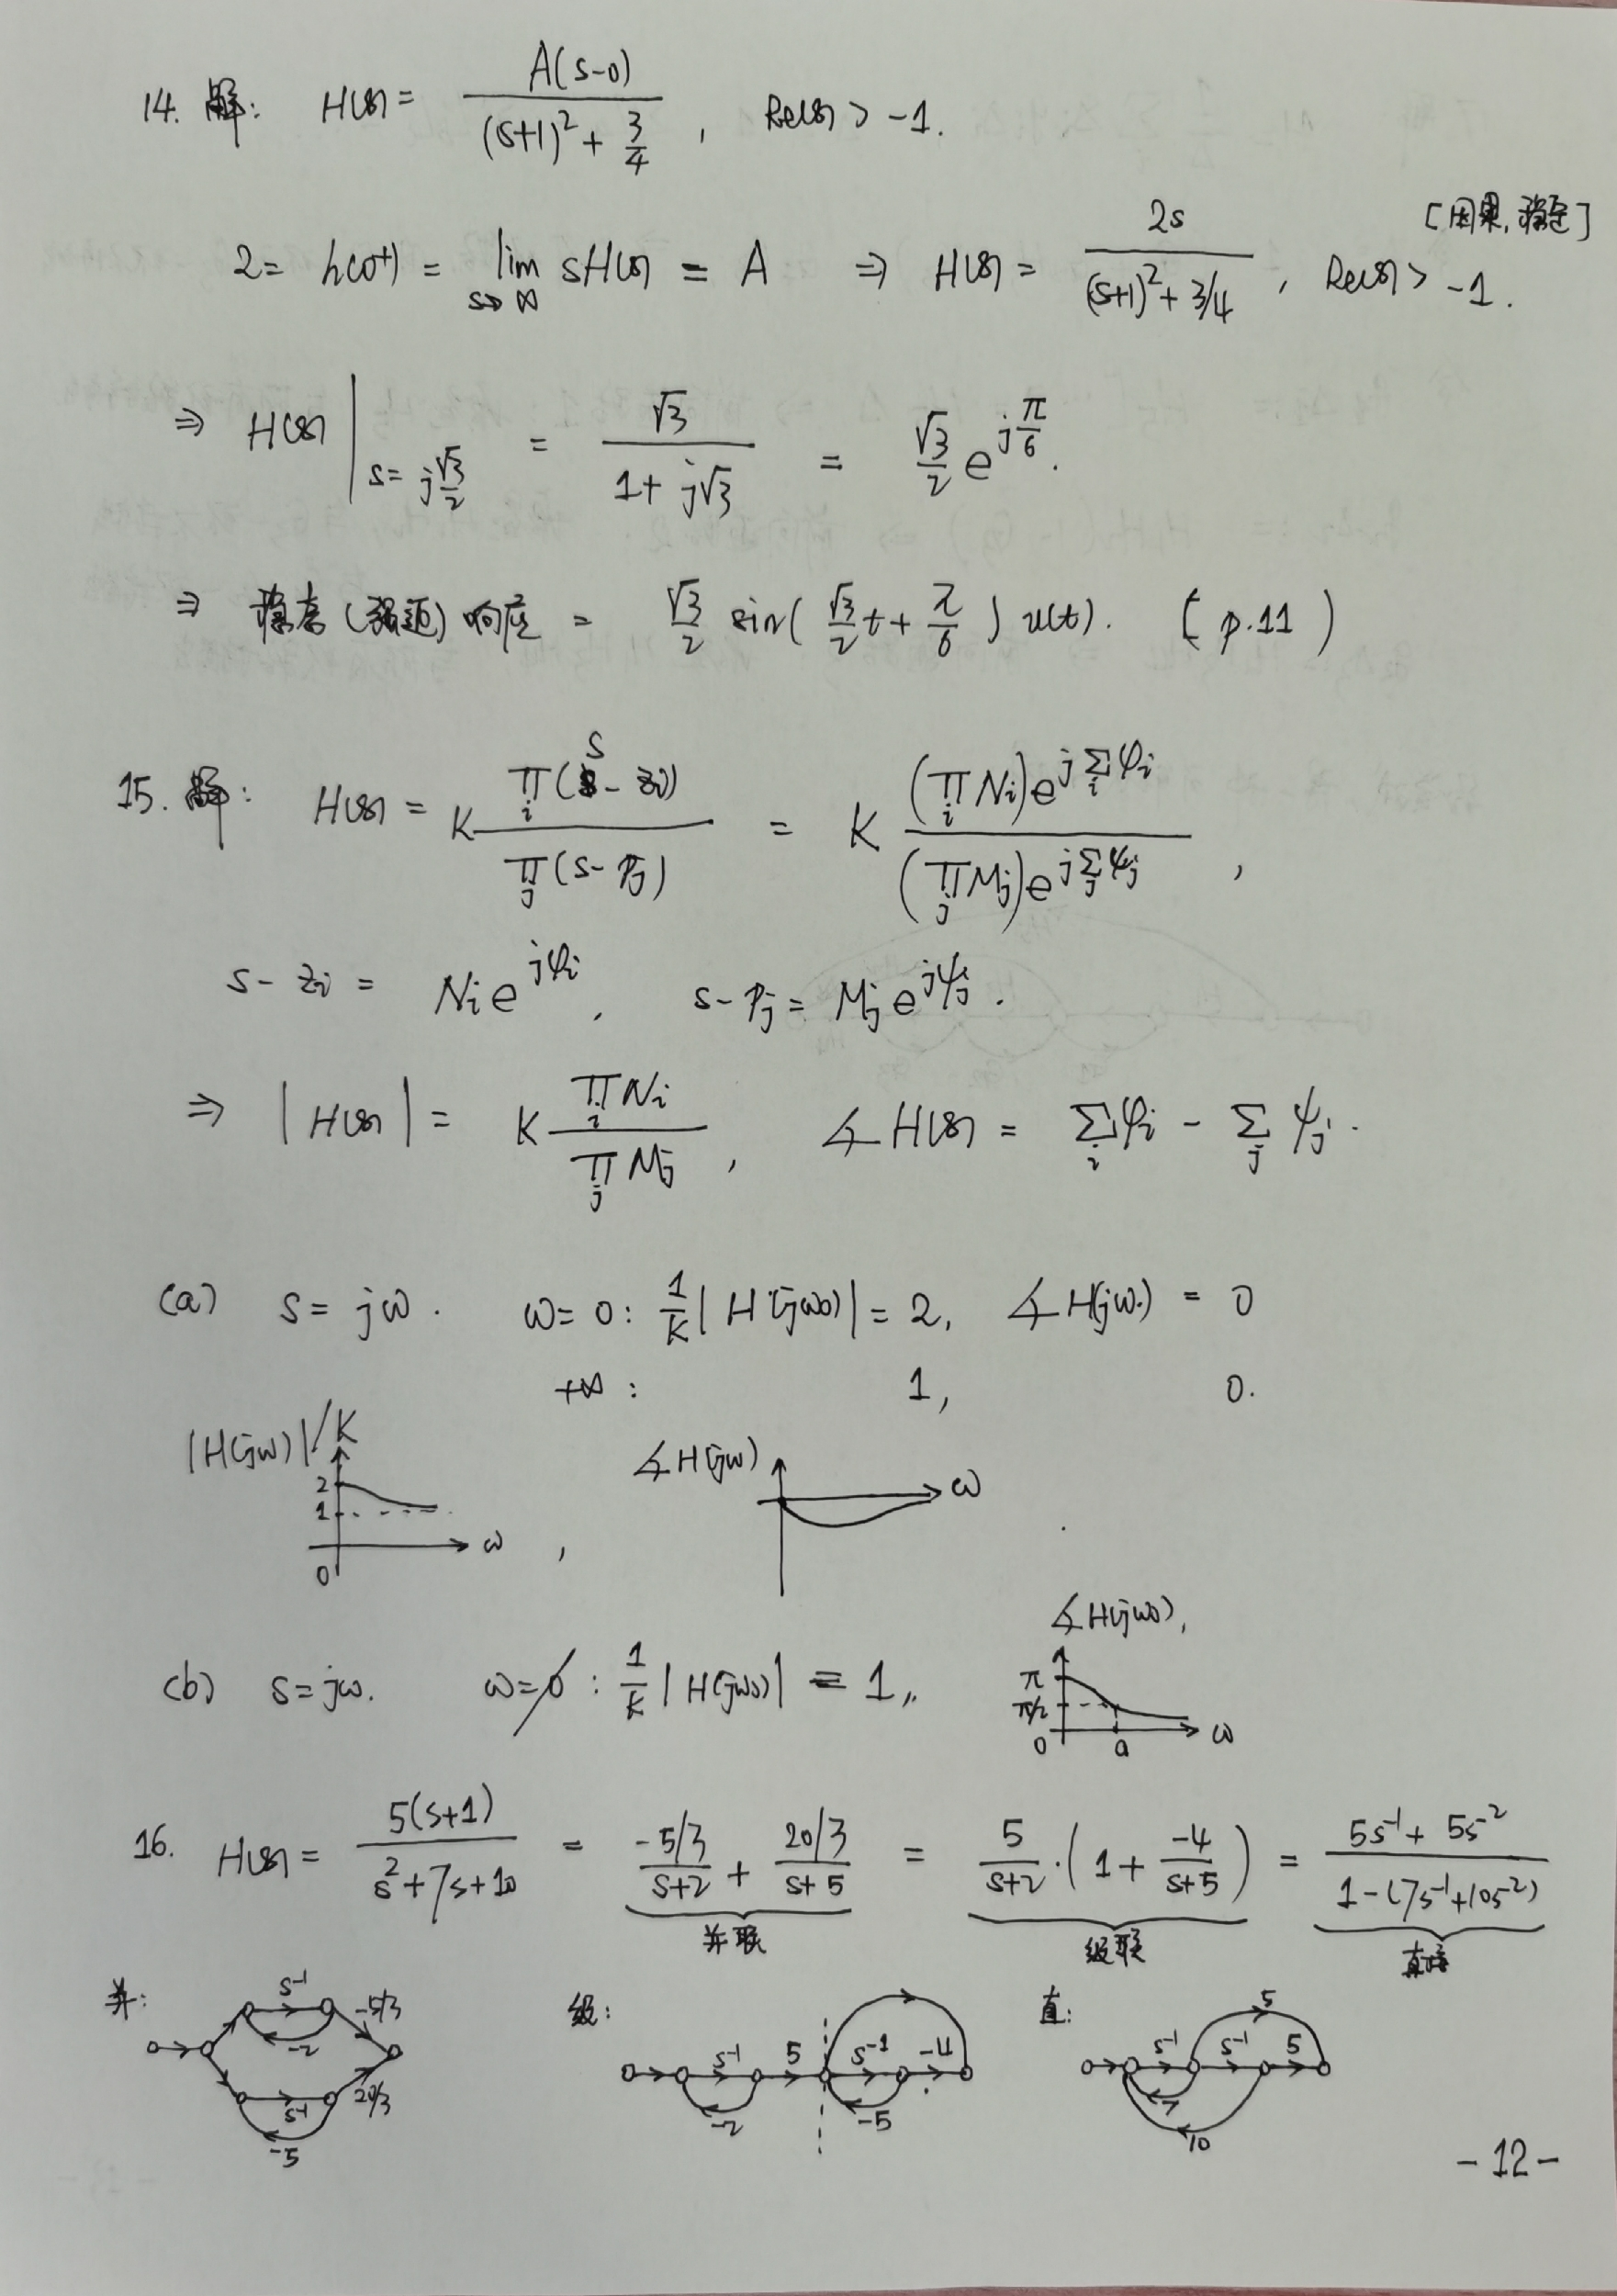 14. 解: H(s) = A(s-0) / ((s+1)² + 3/4), Re(s) > -1.
[因果, 稳定]
2 = h(0+) = lim s→∞ sH(s) = A ⇒ H(s) = 2s / ((s+1)² + 3/4), Re(s) > -1.
⇒ H(s) | s = j√3/2 = √3 / (1 + j√3) = √3/2 e^{jπ/6}.
⇒ 稳态 (强迫) 响应 = √3/2 sin( √3/2 t + π/6 ) u(t). ( p.11 )
15. 解: H(s) = K ∏_i (s - z_i) / ∏_j (s - p_j) = K (∏_i N_i) e^{j∑_i φ_i} / (∏_j M_j) e^{j∑_j ψ_j},
s - z_i = N_i e^{jφ_i}, s - p_j = M_j e^{jψ_j}.
⇒ |H(s)| = K ∏_i N_i / ∏_j M_j, ∡H(s) = ∑_i φ_i - ∑_j ψ_j.
(a) s = jω. ω = 0: 1/K |H(jω)| = 2, ∡H(jω) = 0
+∞: 1, 0.
|H(jω)|/K 2 1 0 ω, ∡H(jω) ω
(b) s = jω. ω = 0 : 1/K |H(jω)| ≡ 1, ∡H(jω), π π/2 0 a ω
16. H(s) = 5(s+1) / (s² + 7s + 10) = (-5/3)/(s+2) + (20/3)/(s+5) = 5/(s+2) · (1 + -4/(s+5)) = (5s⁻¹ + 5s⁻²) / (1 - (7s⁻¹ + 10s⁻²))
并联 级联 直接
并: s⁻¹ -2 -5/3 s⁻¹ -5 20/3
级: s⁻¹ -2 5 s⁻¹ -5 -4
直: s⁻¹ s⁻¹ 5 5 7 10
- 12 -